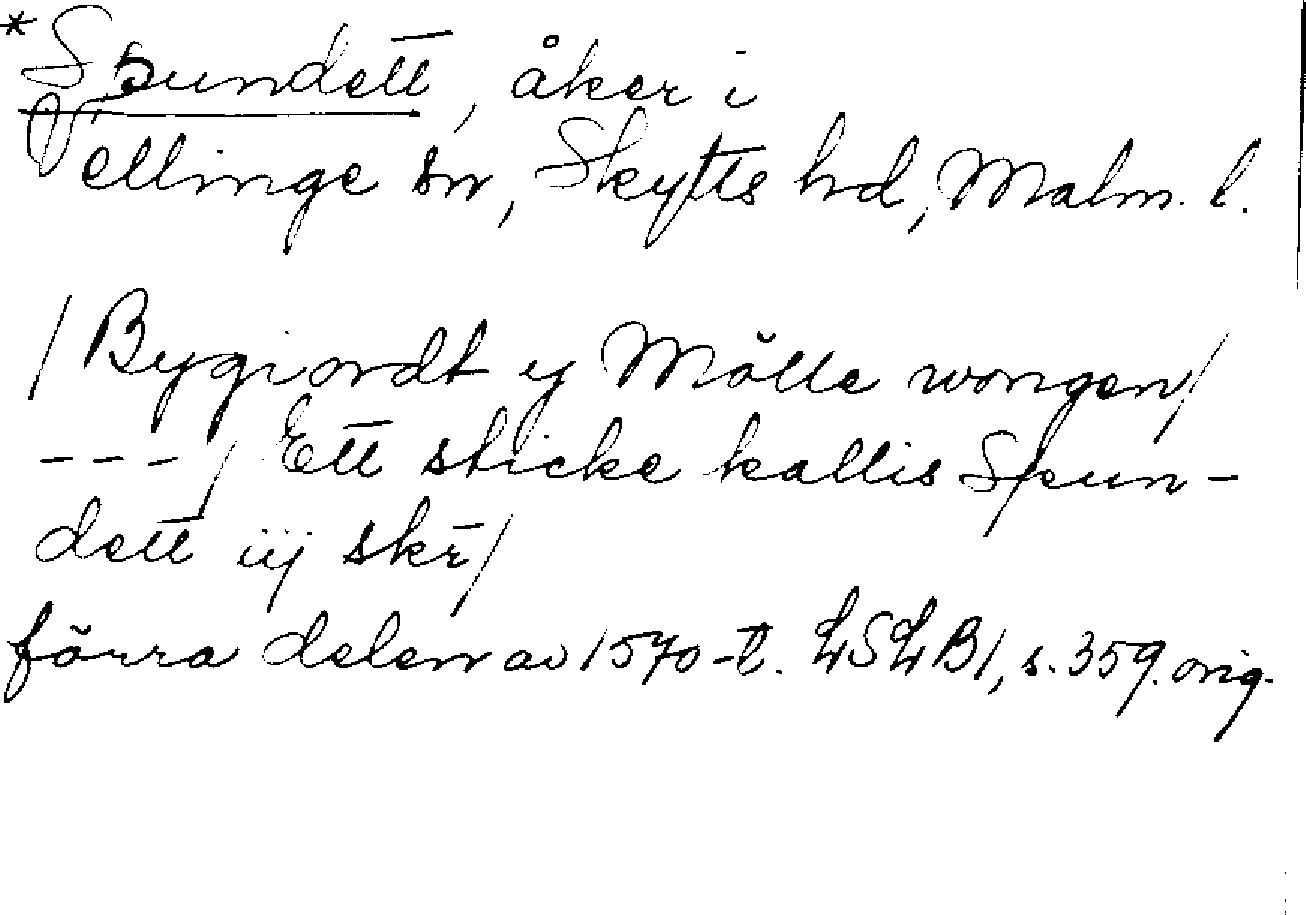 *Spundett, åker i
Vellinge sn, Skytts hd, Malm. l.
/Bygiordt y Mölle wongen/
---/ Ett sticke kallis Spun-
dett iij skr/
förra delen av 1570-t. LSLB1, s. 359. orig.